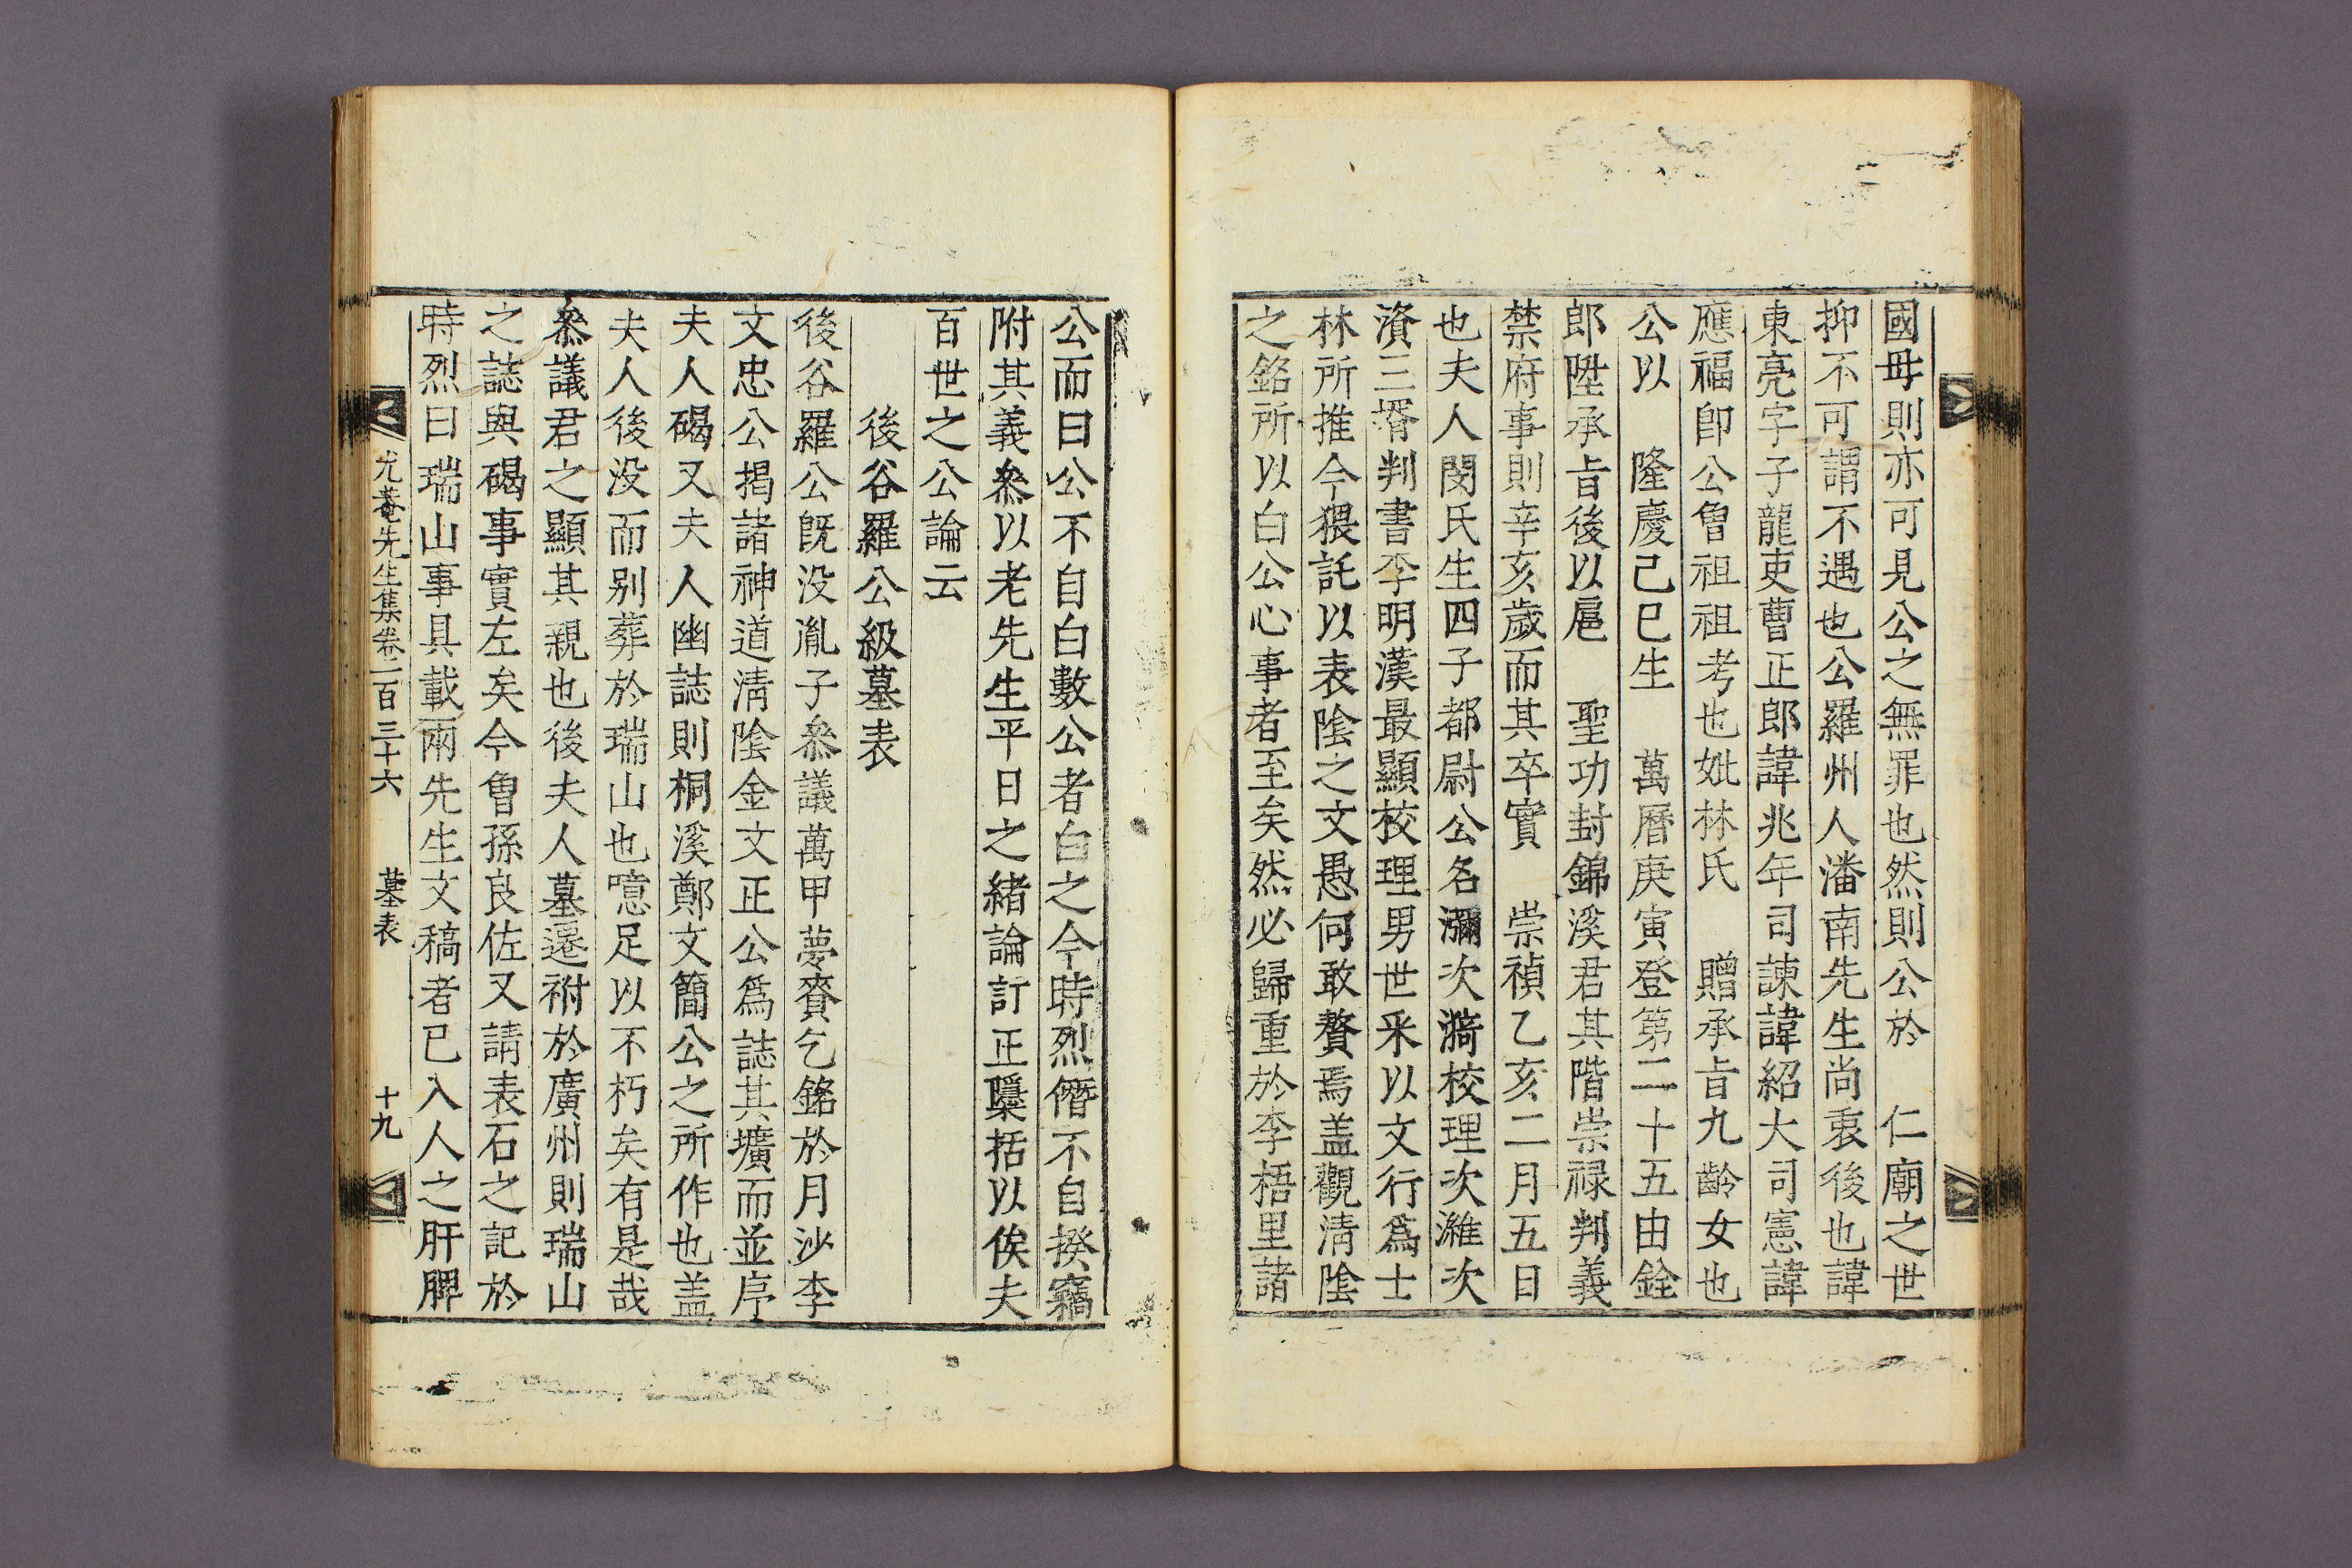 國母則亦可見公之無罪也然則公於 仁廟之世
抑不可謂不遇也公羅州人潘南先生尚衷後也諱
東亮字子龍吏曹正郎諱兆年司諫諱紹大司憲諱
應福卽公曾祖祖考也妣林氏 贈承旨九齡女也
公以 隆慶己巳生 萬曆庚寅登第二十五由銓
郎陞承旨後以扈 聖功封錦溪君其階崇祿判義
禁府事則辛亥歲而其卒實 崇禎乙亥二月五日
也夫人閔氏生四子都尉公名瀰次漪校理次濰次
濱三壻判書李明漢最顯校理男世采以文行爲士
林所推今猥託以表陰之文愚何敢贅焉盖觀淸陰
之銘所以白公心事者至矣然必歸重於李梧里諸
公而曰公不自白數公者白之今時烈僭不自揆竊
附其義叅以老先生平日之緖論訂正檃括以俟夫
百世之公論云
後谷羅公級墓表
後谷羅公旣没胤子叅議萬甲夢賚乞銘於月沙李
文忠公揭諸神道淸陰金文正公爲誌其壙而並序
夫人碣又夫人幽誌則桐溪鄭文簡公之所作也盖
夫人後没而别葬於瑞山也噫足以不朽矣有是哉
叅議君之顯其親也後夫人墓遷祔於廣州則瑞山
之誌與碣事實左矣今曾孫良佐又請表石之記於
時烈曰瑞山事具載兩先生文稿者已入人之肝脾
尤菴先生集卷二百三十六 墓表 十九